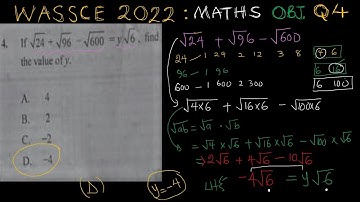 WASSCE 2022 : MATHS OBJ. Q4
4. If √24 + √96 − √600 = y√6, find
the value of y.
A. 4
B. 2
C. −2
D. −4
√24 + √96 − √600
24 − 1 24 2 12 3 8 4 6
96 − 1 96 6 16
600 − 1 600 2 300 6 100
√4×6 + √16×6 − √100×6
√ab = √a · √b
= √4 × √6 + √16 × √6 − √100 × √6
⇒ 2√6 + 4√6 − 10√6
LHS −4√6 = y√6
(D) y = −4